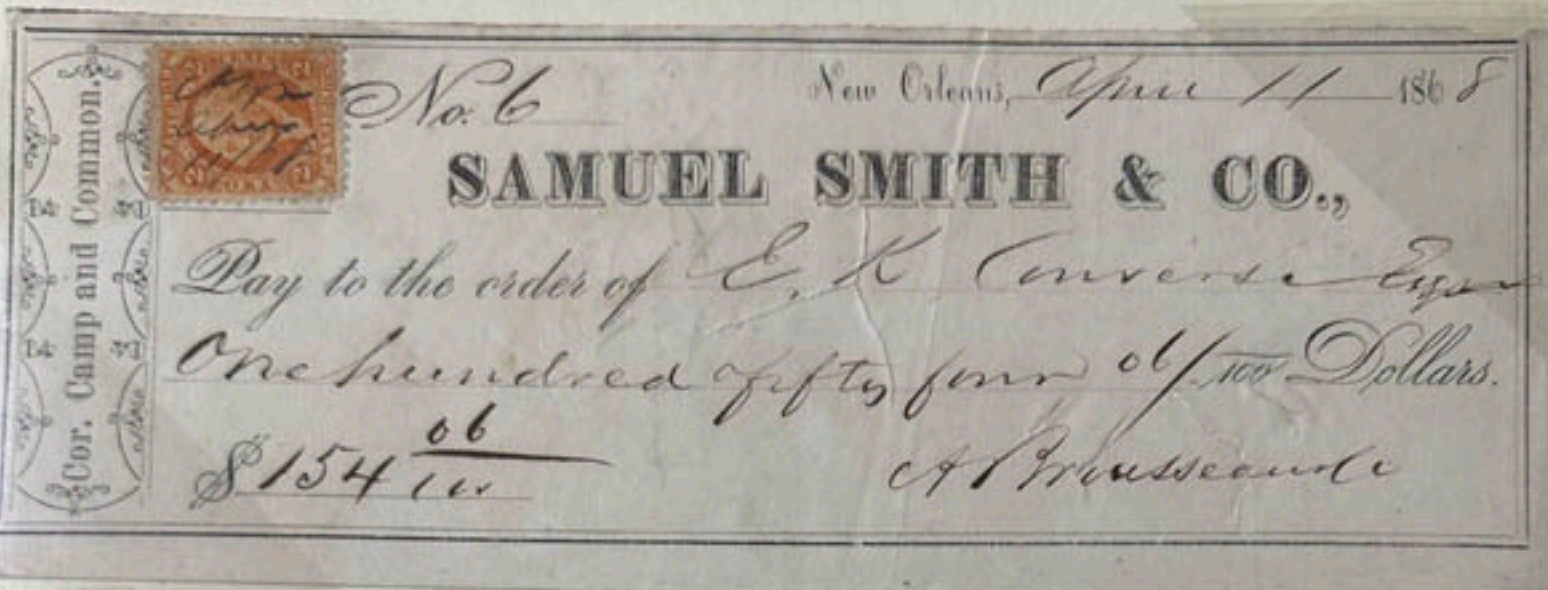 Cor. Camp and Common.
No. 6
New Orleans, April 11 1868
SAMUEL SMITH & CO.,
Pay to the order of E. K Converse Esqr
One hundred fifty four 06/100 Dollars.
$154 06/100
A Brousseau & Co